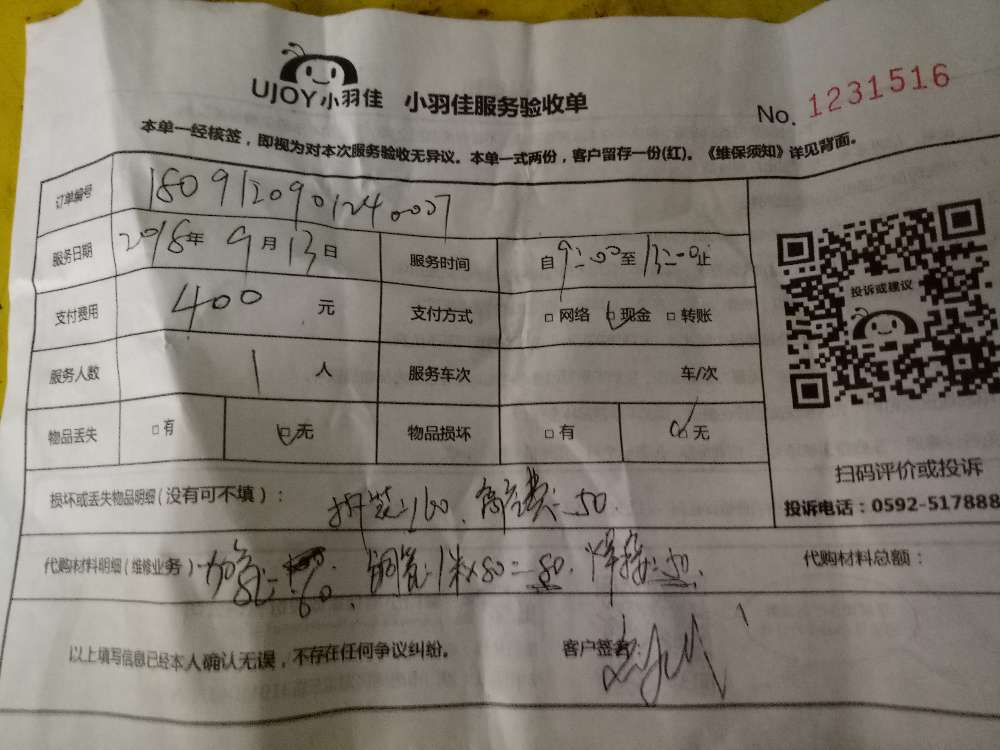 UJOY小羽佳 小羽佳服务验收单
No. 1231516
本单一经核签，即视为对本次服务验收无异议。本单一式两份，客户留存一份(红)。《维保须知》详见背面。
订单编号 1809120901240007
服务日期 2018年 9月13日 服务时间 自9:00至13:00止
支付费用 400 元 支付方式 □网络 □现金 □转账
服务人数 1 人 服务车次 车/次
物品丢失 □有 □无 物品损坏 □有 □无
投诉或建议
扫码评价或投诉
投诉电话：0592-517888
损坏或丢失物品明细（没有可不填）： 拆装:160、高空费:50
代购材料明细（维修业务） 加氟 60、铜管:1米×80=80、焊接:50. 代购材料总额：
以上填写信息已经本人确认无误，不存在任何争议纠纷。 客户签名：